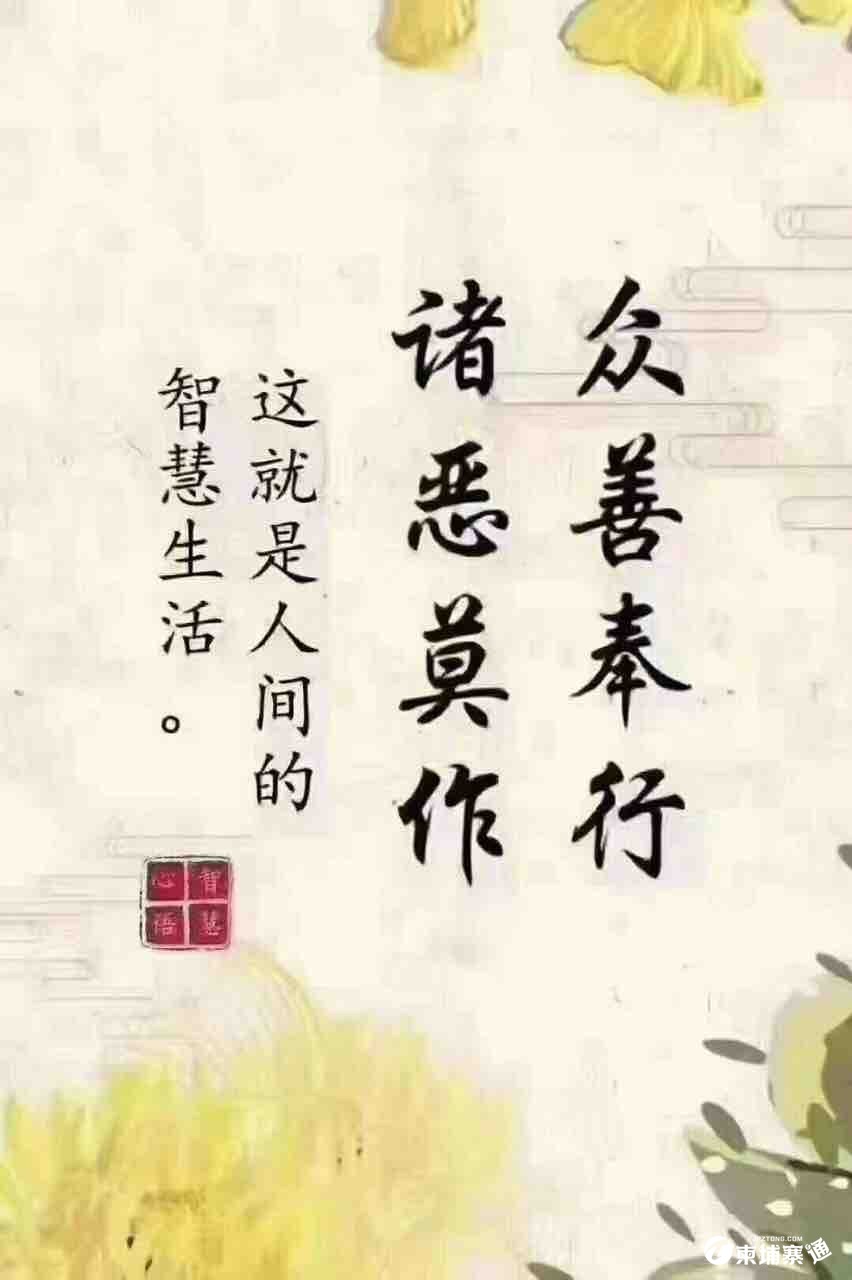 众善奉行
诸恶莫作
这就是人间的
智慧生活。
智慧
心语
柬埔寨通